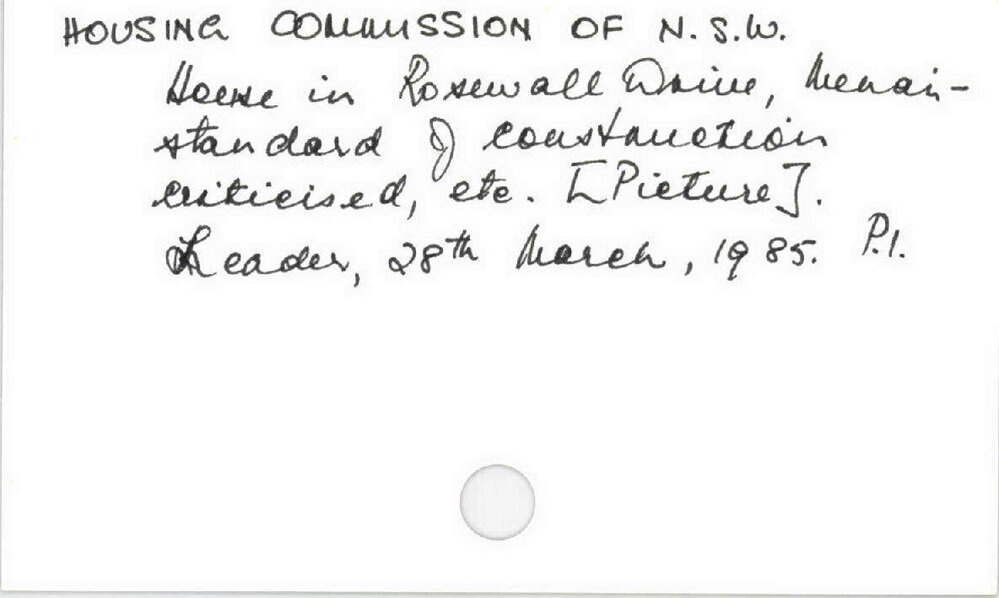 HOUSING COMMISSION OF N.S.W.
House in Rosewall Drive, Menai-
standard of construction
criticised, etc. [Picture].
Leader, 28th March, 1985. P.1.